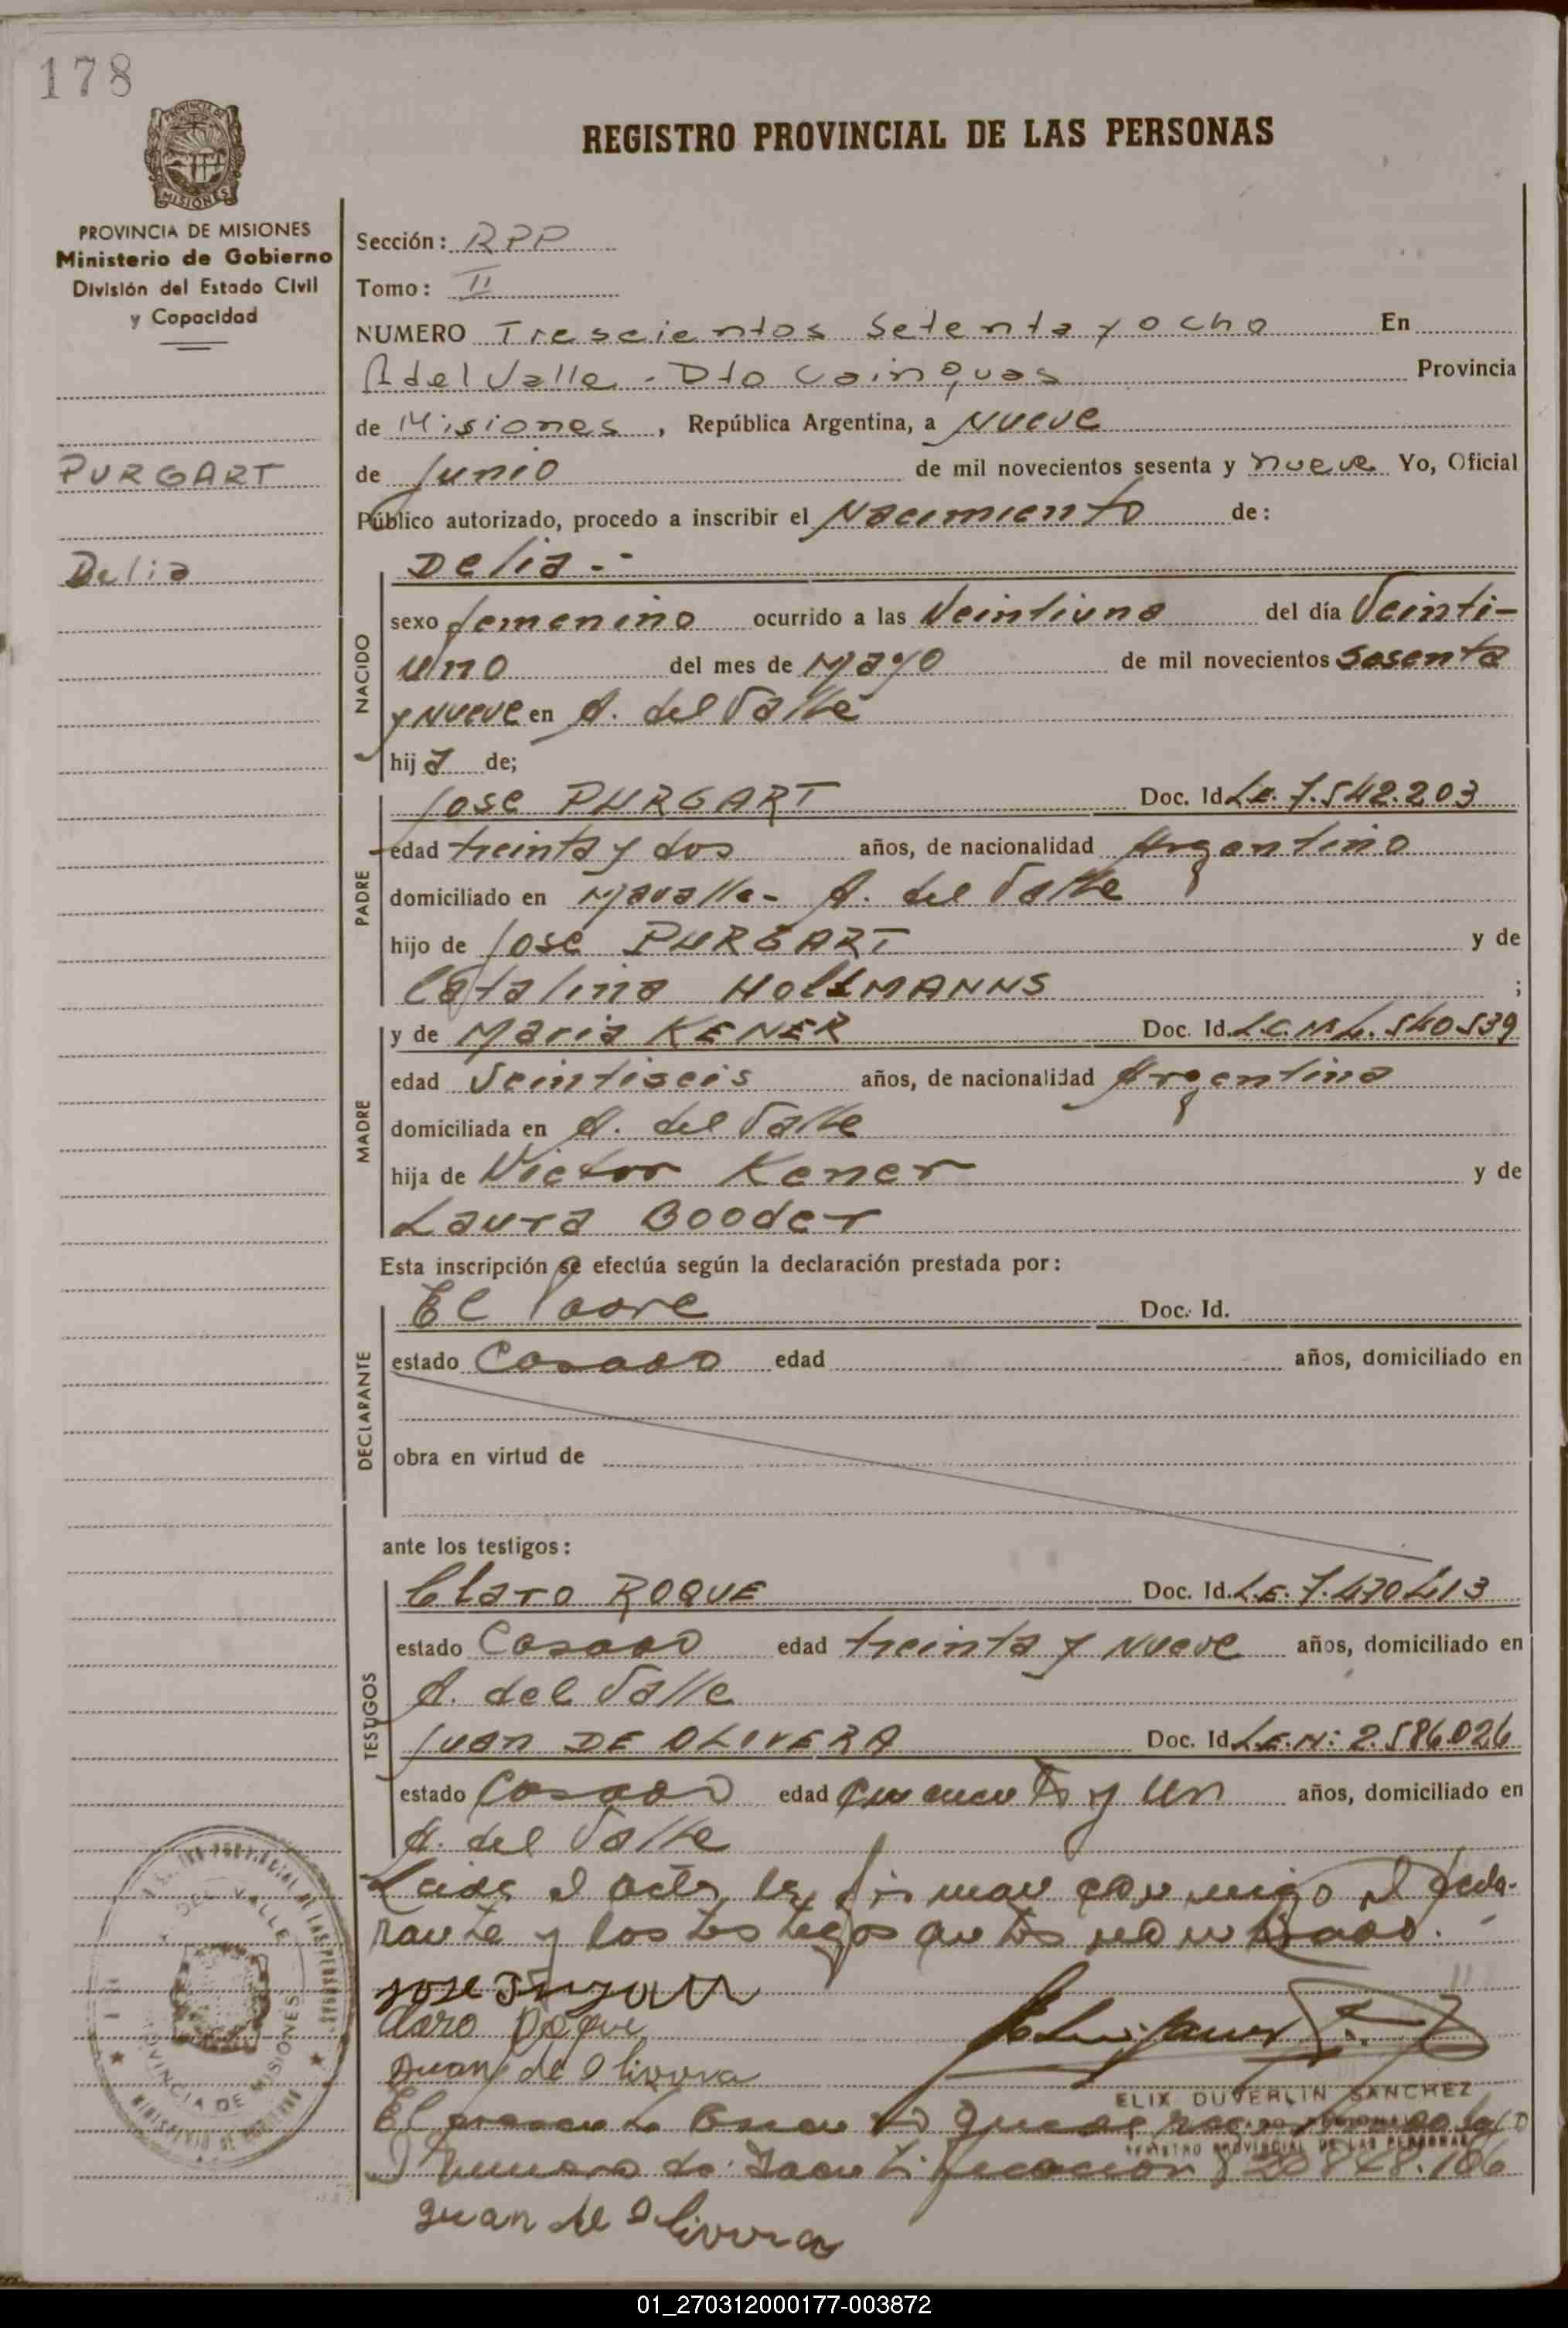 178
PROVINCIA DE
MISIONES
REGISTRO PROVINCIAL DE LAS PERSONAS
PROVINCIA DE MISIONES
Ministerio de Gobierno
División del Estado Civil
y Capacidad
PURGART
Delia
Sección: RPP
Tomo: II
NUMERO Trescientos Setenta y ocho En
A del Valle - Dto Cainguas Provincia
de Misiones, República Argentina, a Nueve
de Junio de mil novecientos sesenta y nueve Yo, Oficial
Público autorizado, procedo a inscribir el Nacimiento de:
NACIDO
Delia.-
sexo femenino ocurrido a las Veintiuna del día Veinti-
uno del mes de Mayo de mil novecientos Sesenta
y Nueve en A. del Valle
hija de;
PADRE
Jose PURGART Doc. Id. L.E. 7.542.203
edad treinta y dos años, de nacionalidad Argentino
domiciliado en Mavalle- A. del Valle
hijo de José PURGART y de
Catalina HolTMANNS ;
MADRE
y de Maria KENER Doc. Id. L.C. 540539
edad Veintiseis años, de nacionalidad Argentina
domiciliada en A. del Valle
hija de Victor Kener y de
Laura Booder
Esta inscripción se efectúa según la declaración prestada por:
DECLARANTE
El Padre Doc. Id.
estado Casado edad años, domiciliado en
obra en virtud de
ante los testigos:
TESTIGOS
Claro ROQUE Doc. Id. L.E. 7.470413
estado Casado edad treinta y Nueve años, domiciliado en
A. del Valle
Juan DE OLIVERA Doc. Id. L.E.N: 2.586.026
estado Casado edad cincuenta y un años, domiciliado en
A. del Valle
Leida el acta, la firman conmigo el decla-
rante y los testigos antes nombrados.
Jose
Claro Roque
Juan de Olivera
ELIX DUVERLIN SANCHEZ
REGISTRO PROVINCIAL DE LAS PERSONAS
El queda bajo
Numero de Identificacion 848.106
Juan de Olivera
DEL VALLE
PROVINCIA DE MISIONES
MINISTERIO DE GOBIERNO
01_270312000177-003872